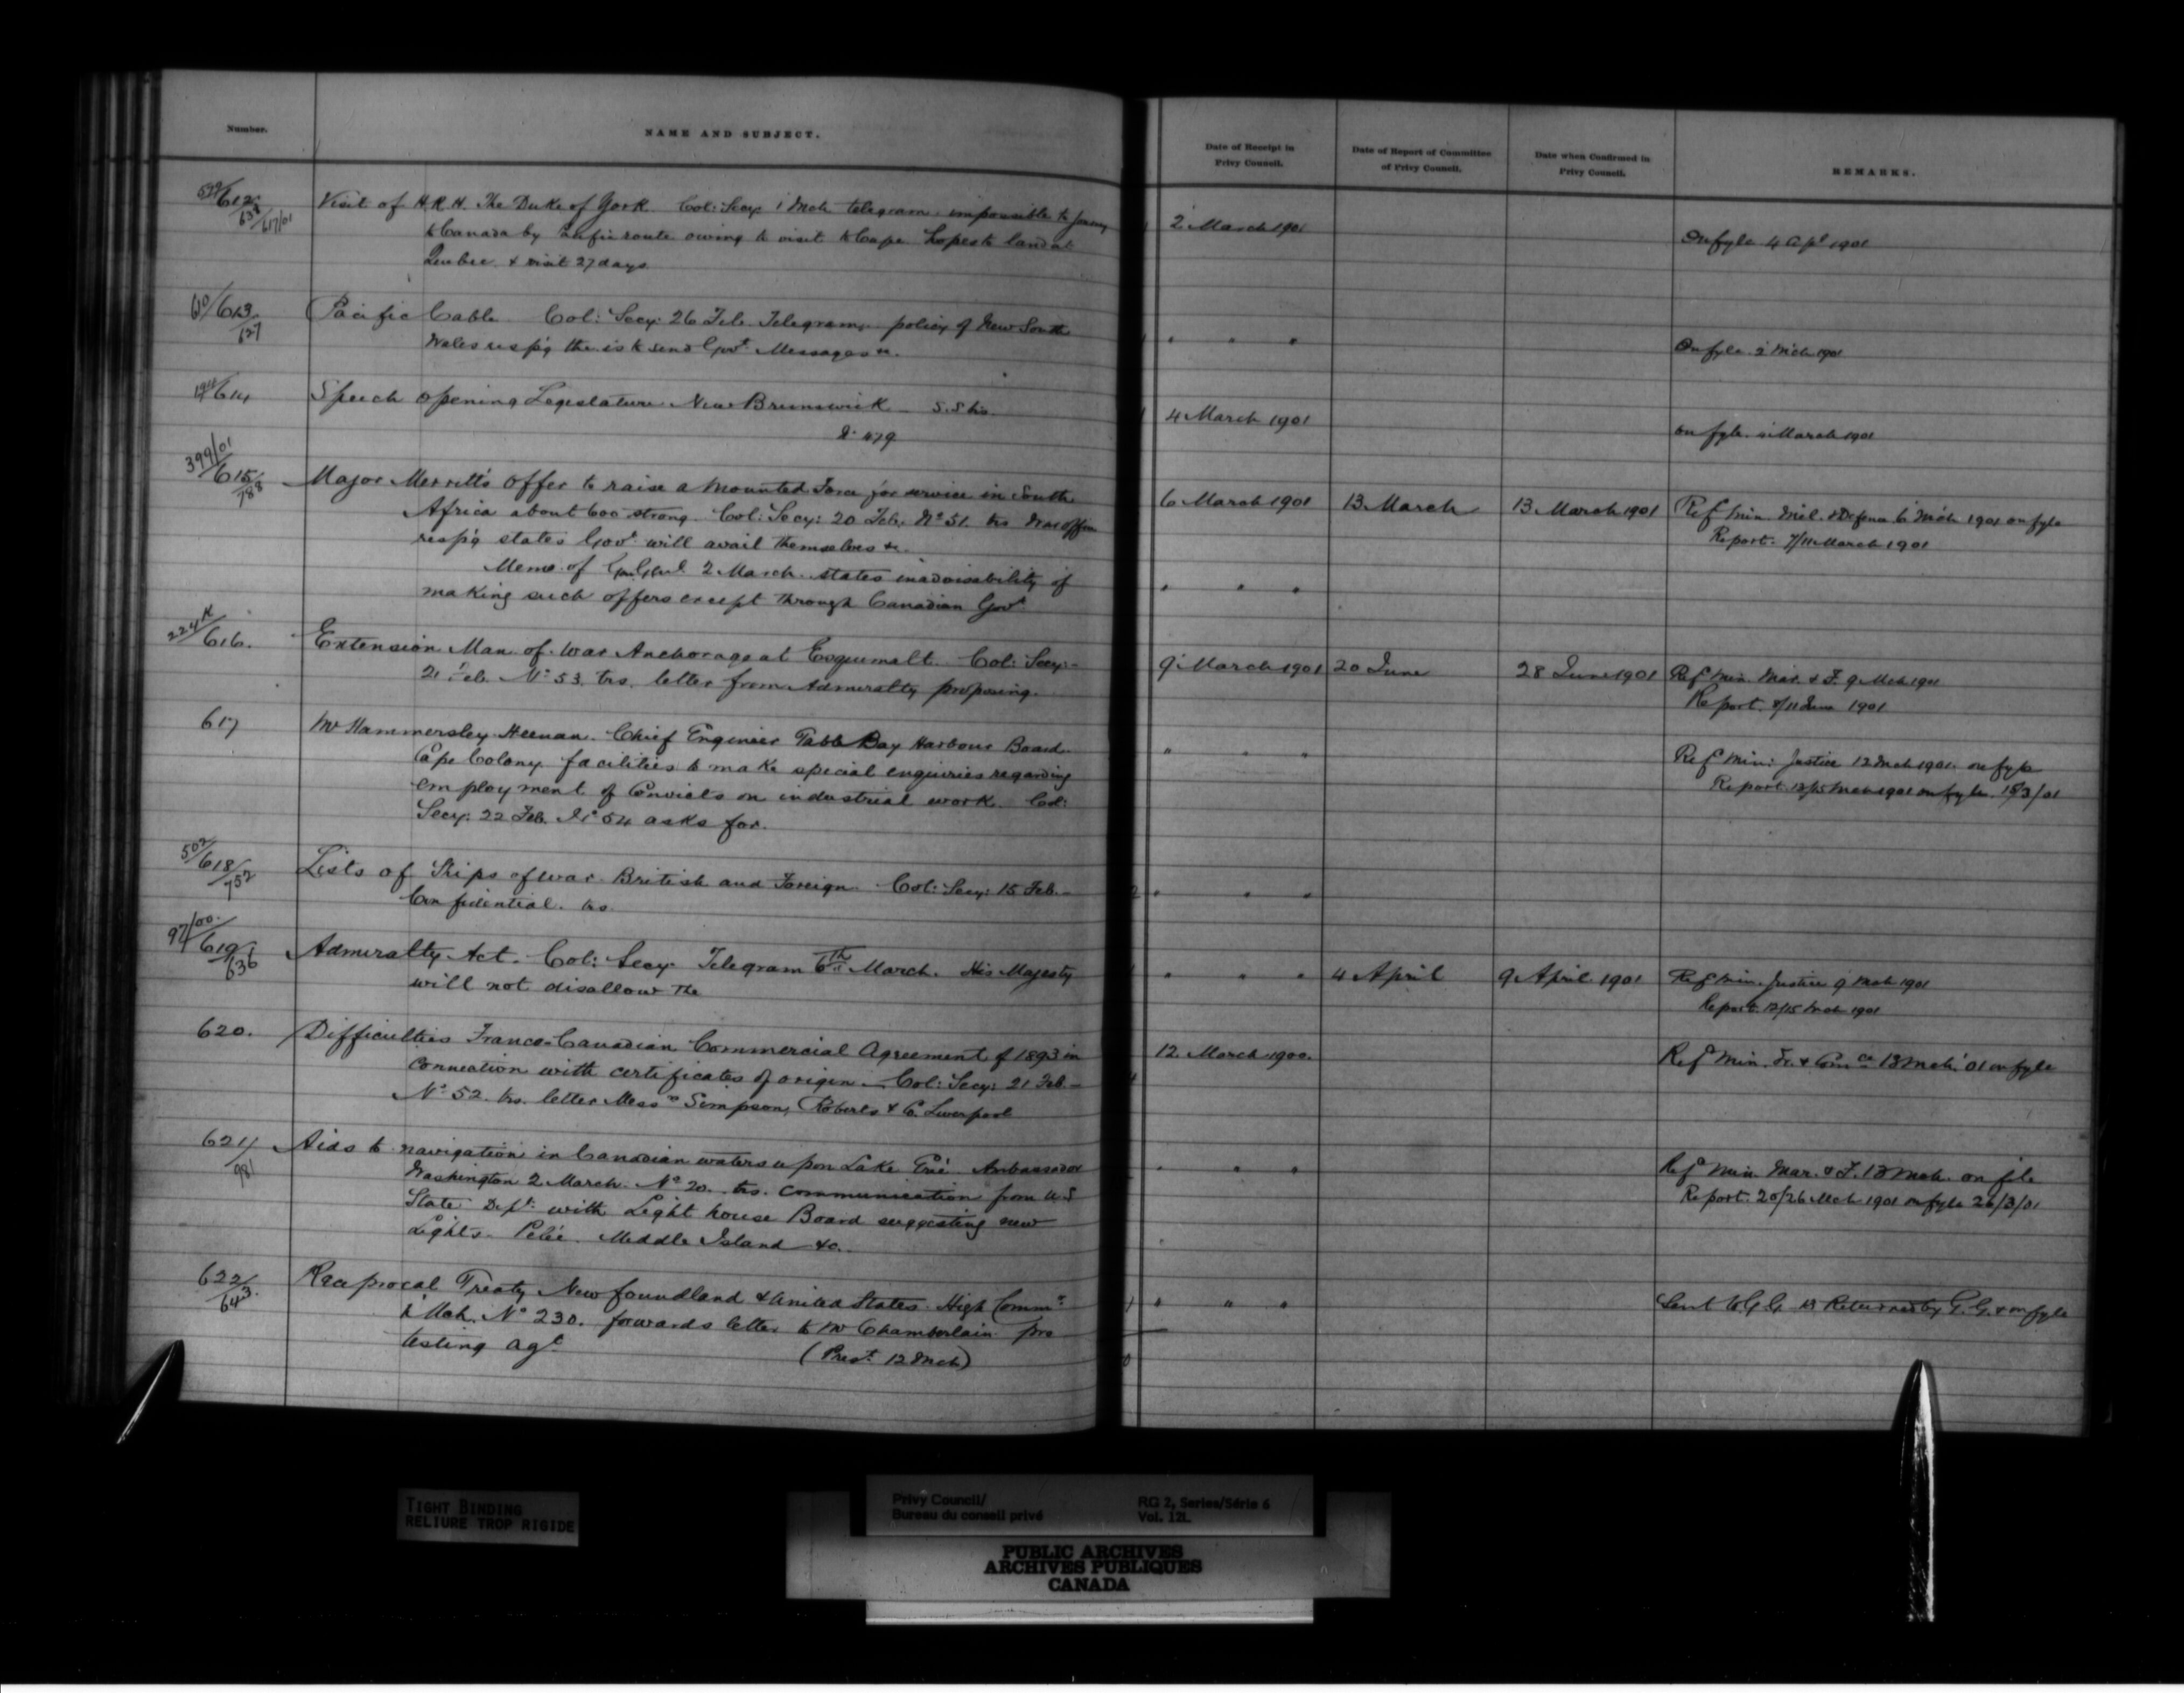 Number.
NAME AND SUBJECT.
Date of Receipt in Privy Council.
Date of Report of Committee of Privy Council.
Date when Confirmed in Privy Council.
REMARKS.
612
Visit of H.R.H. The Duke of York. Col: Secy. 1 Mch telegram. impossible to
to Canada by route owing to visit to Cape hopes to land at
Quebec & visit 27 days
2 March 1901
On fyle 4 Apl 1901
613/627
Pacific Cable Col: Secy. 26 Feb. Telegram. policy of New South
Wales resp'g the is to send Govt. Messages &c.
" " "
On fyle 2 Mch 1901
614
Speech opening Legislature New Brunswick
4 March 1901
on fyle March 1901
399/01
615/788
Major Merritt's offer to raise a mounted Force for service in South
Africa about 600 strong. Col: Secy: 20 Feb. No 51. trs War offce
resp'g states Govt. will avail themselves &c.
Memo of 2 March. states inadvisability of
making such offers except through Canadian Govt
6 March 1901
13 March
13 March 1901
Ref Min. Mil. & Defence 6 Mch 1901 on fyle
Report. 7/11 March 1901
" " "
616.
Extension Man. of. War Anchorage at Esquimalt. Col: Secy:
21 Feb. No 53. trs. letter from Admiralty proposing.
9 March 1901
20 June
28 June 1901
Ref Min. Mar. & F. 9 Mch 1901
Report. /11 June 1901
617
Mr Hammersley-Heenan. Chief Engineer Table Bay Harbour Board.
Cape Colony. facilities to make special enquiries regarding
employment of Convicts on industrial work. Col:
Secy. 22 Feb. No 54 asks for.
" " "
Ref Min: Justice 12 Mch 1901. on fyle
Report 13/15 Mch 1901 on fyle. 15/3/01
502/618/752
Lists of Ships of war British and Foreign. Col: Secy: 15 Feb.
Confidential. trs.
" " "
97/00.
619/636
Admiralty Act. Col: Secy. Telegram 6th March. His Majesty
will not disallow The
" " "
4 April
9 April 1901
Ref Min. Justice 9 Mch 1901
Report. 12/15 Mch 1901
620.
Difficulties Franco-Canadian Commercial Agreement of 1893 in
connection with certificates of origin. Col: Secy: 21 Feb.
No 52. trs. letter Messrs Simpson, Roberts & Co. Liverpool
12 March 1900.
Refd Min. Tr. & Comce 13 Mch. '01 on fyle
621/981
Aids to navigation in Canadian waters upon Lake Erie. Ambassador
Washington 2 March. No 20. trs. communication from U.S
State Dept. with Light house Board suggesting new
Lights. Pelée. Middle Island &c.
" " "
Refd Min. Mar. & F. 13 Mch. on file
Report. 20/26 Mch 1901 on fyle 26/3/01
622/643.
Reciprocal Treaty Newfoundland & United States. High Commr.
Mch. No 230. forwards letter to Mr Chamberlain pro
testing agt
(Prest. 12 Mch)
" " "
Sent to G.G. Returned by G.G. & on fyle
TIGHT BINDING
RELIURE TROP RIGIDE
Privy Council/
Bureau du conseil privé
RG 2, Series/Série 6
Vol. 121.
PUBLIC ARCHIVES
ARCHIVES PUBLIQUES
CANADA